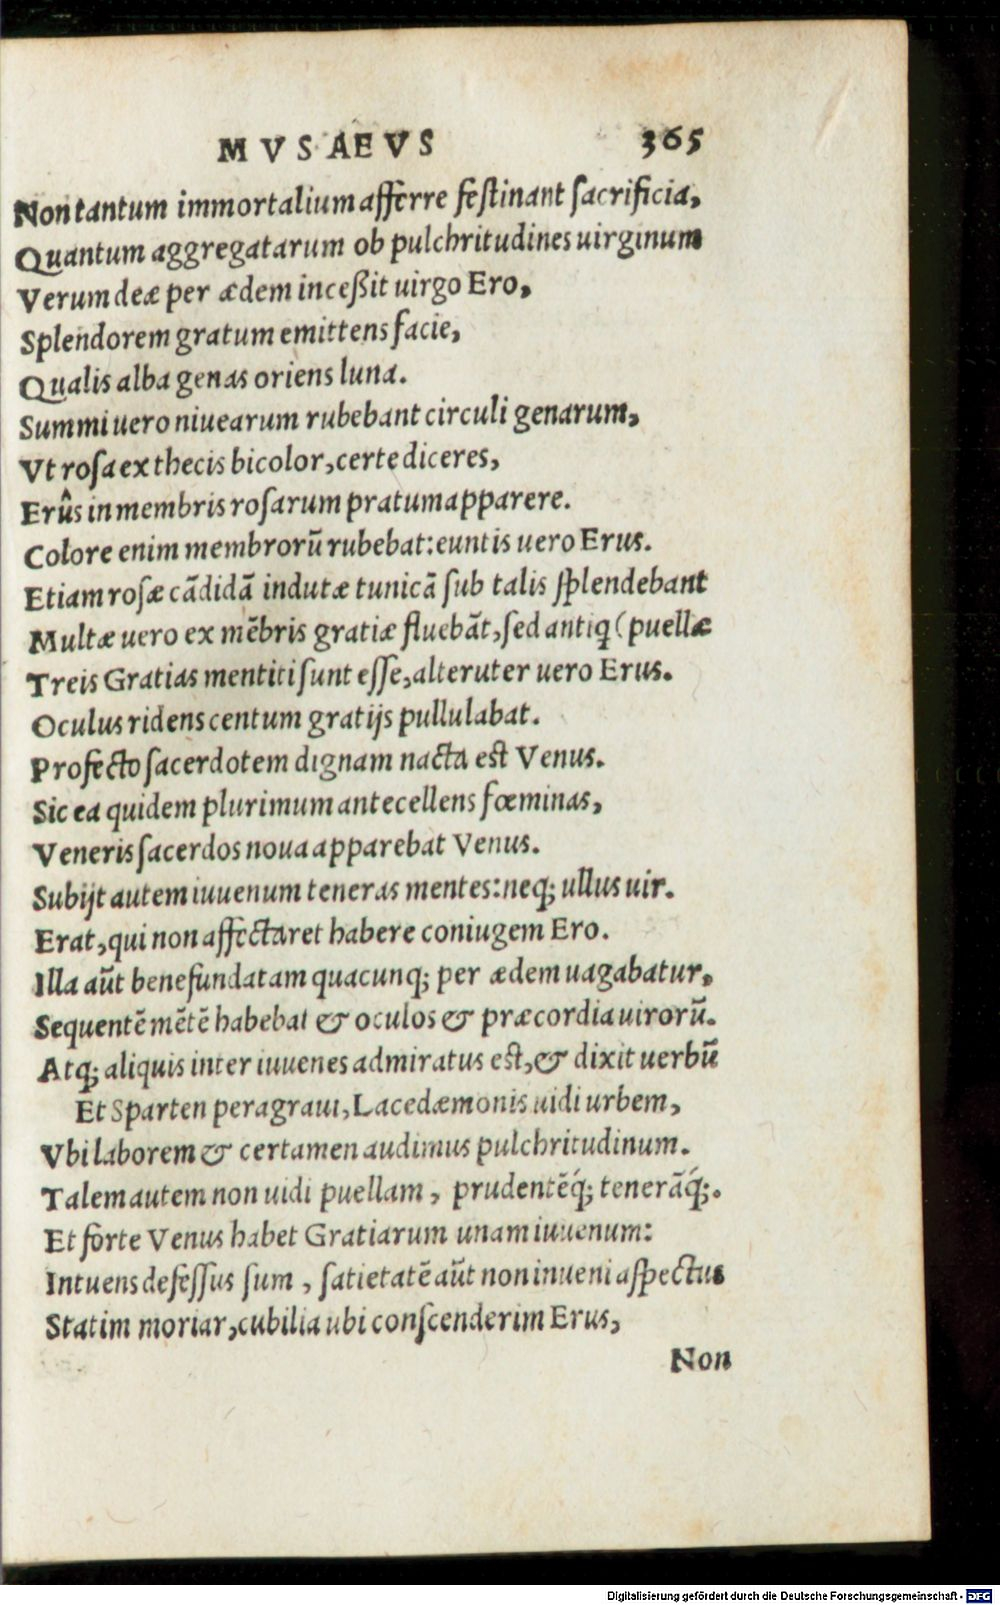 MVSAEVS 365
Non tantum immortalium afferre festinant sacrificia,
Quantum aggregatarum ob pulchritudines uirginum
Verum deæ per ædem inceßit uirgo Ero,
Splendorem gratum emittens facie,
Qualis alba genas oriens luna.
Summi uero niuearum rubebant circuli genarum,
Vt rosa ex thecis bicolor, certe diceres,
Erûs in membris rosarum pratum apparere.
Colore enim membrorũ rubebat: euntis uero Erus.
Etiam rosæ cãdidã indutæ tunicã sub talis splendebant
Multæ uero ex mẽbris gratiæ fluebãt, sed antiq (puellæ
Treis Gratias mentiti sunt esse, alteruter uero Erus.
Oculus ridens centum gratijs pullulabat.
Profecto sacerdotem dignam nacta est Venus.
Sic ea quidem plurimum antecellens fœminas,
Veneris sacerdos noua apparebat Venus.
Subijt autem iuuenum teneras mentes: neq; ullus uir.
Erat, qui non affectaret habere coniugem Ero.
Illa aũt benefundatam quacunq; per ædem uagabatur,
Sequentẽ mẽtẽ habebat & oculos & præcordia uirorũ.
Atq; aliquis inter iuuenes admiratus est, & dixit uerbũ
Et Sparten peragraui, Lacedæmonis uidi urbem,
Vbi laborem & certamen audimus pulchritudinum.
Talem autem non uidi puellam, prudentẽq́; tenerãq́;.
Et forte Venus habet Gratiarum unam iuuenum:
Intuens defessus sum, satietatẽ aũt non inueni aspectus
Statim moriar, cubilia ubi conscenderim Erus,
Non
Digitalisierung gefördert durch die Deutsche Forschungsgemeinschaft - DFG